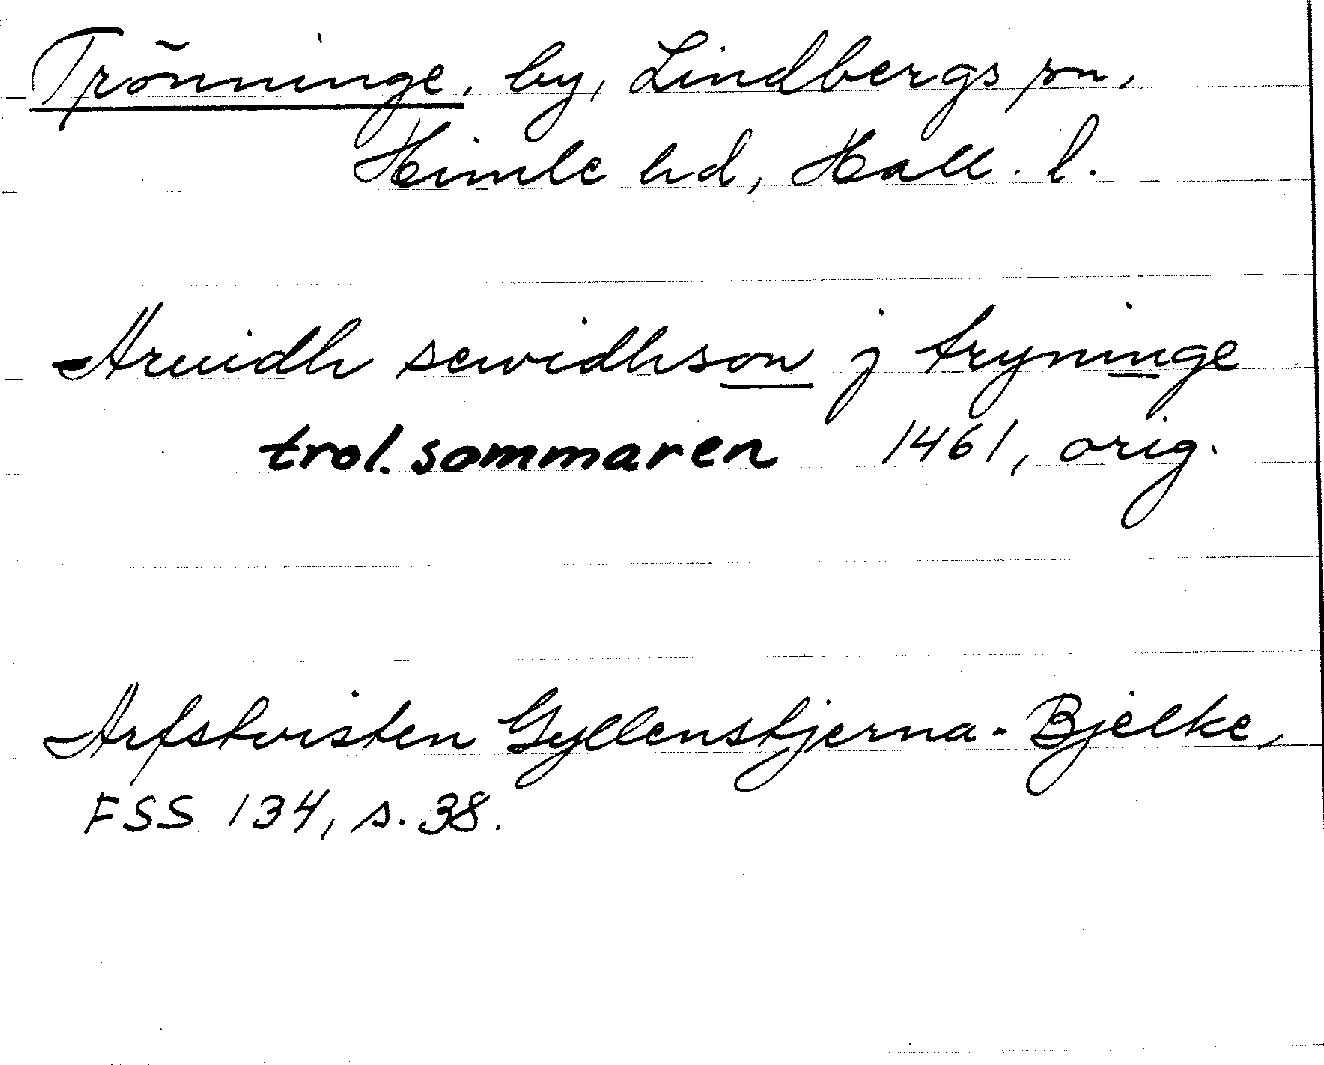 Trönninge, by, Lindbergs sn,
Himle hd, Hall. l.
Aruidh sewidhson j tryninge
trol. sommaren 1461, orig.
Arfstvisten Gyllenstjerna-Bjelke,
FSS 134, s. 38.